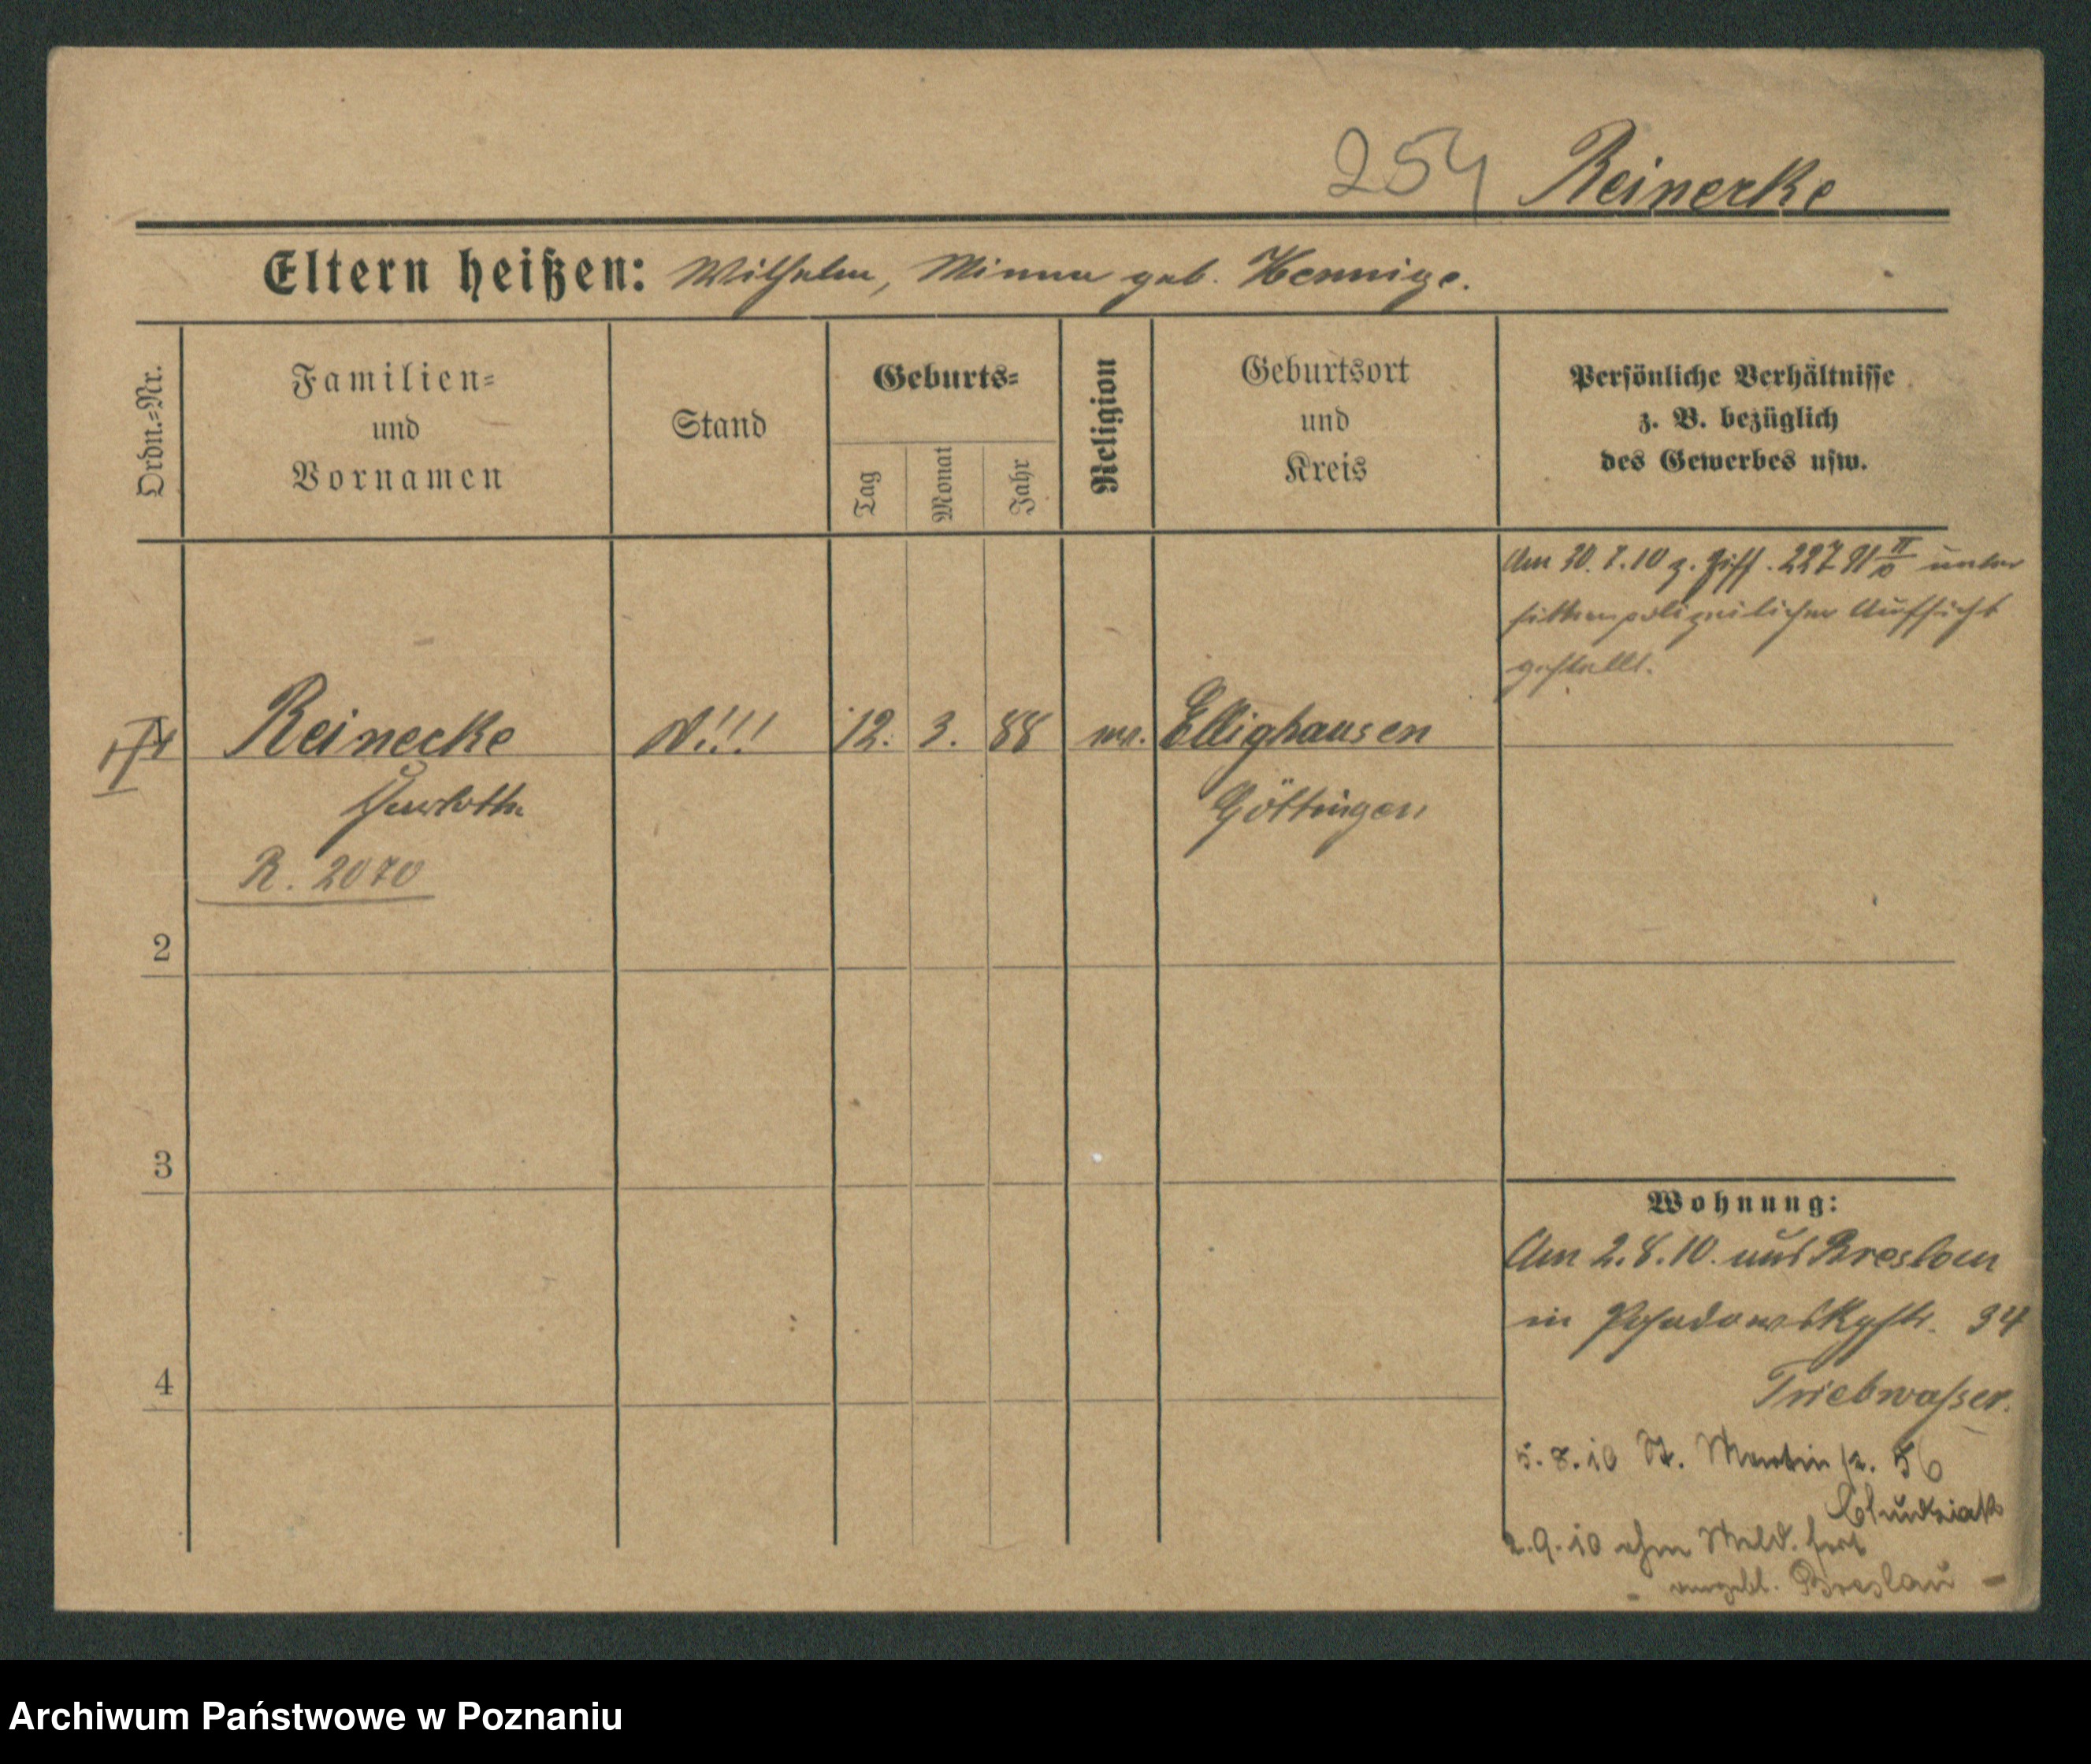 254 Reinecke
Eltern heißen: Wilhelm, Minna geb. Hennige.
Ordn.=Nr.
Familien=
und
Vornamen
Stand
Geburts=
Tag
Monat
Jahr
Religion
Geburtsort
und
Kreis
Persönliche Verhältnisse
z. B. bezüglich
des Gewerbes usw.
Am 30. 7. 10 z. Ziff. 227 II unter
sittenpolizeilicher Aufsicht
gestellt.
Reinecke
!!! 12. 3. 88
Ellighausen
Göttingen
R. 2070
2
3
4
Wohnung:
Am 2. 8. 10. aus Breslau
in Posadowskystr. 34
Triebwasser.
5. 8. 10 St. Martin 56
Chudziak
2. 9. 10 ohne Meld. fort
- angebl. Breslau -
Archiwum Państwowe w Poznaniu